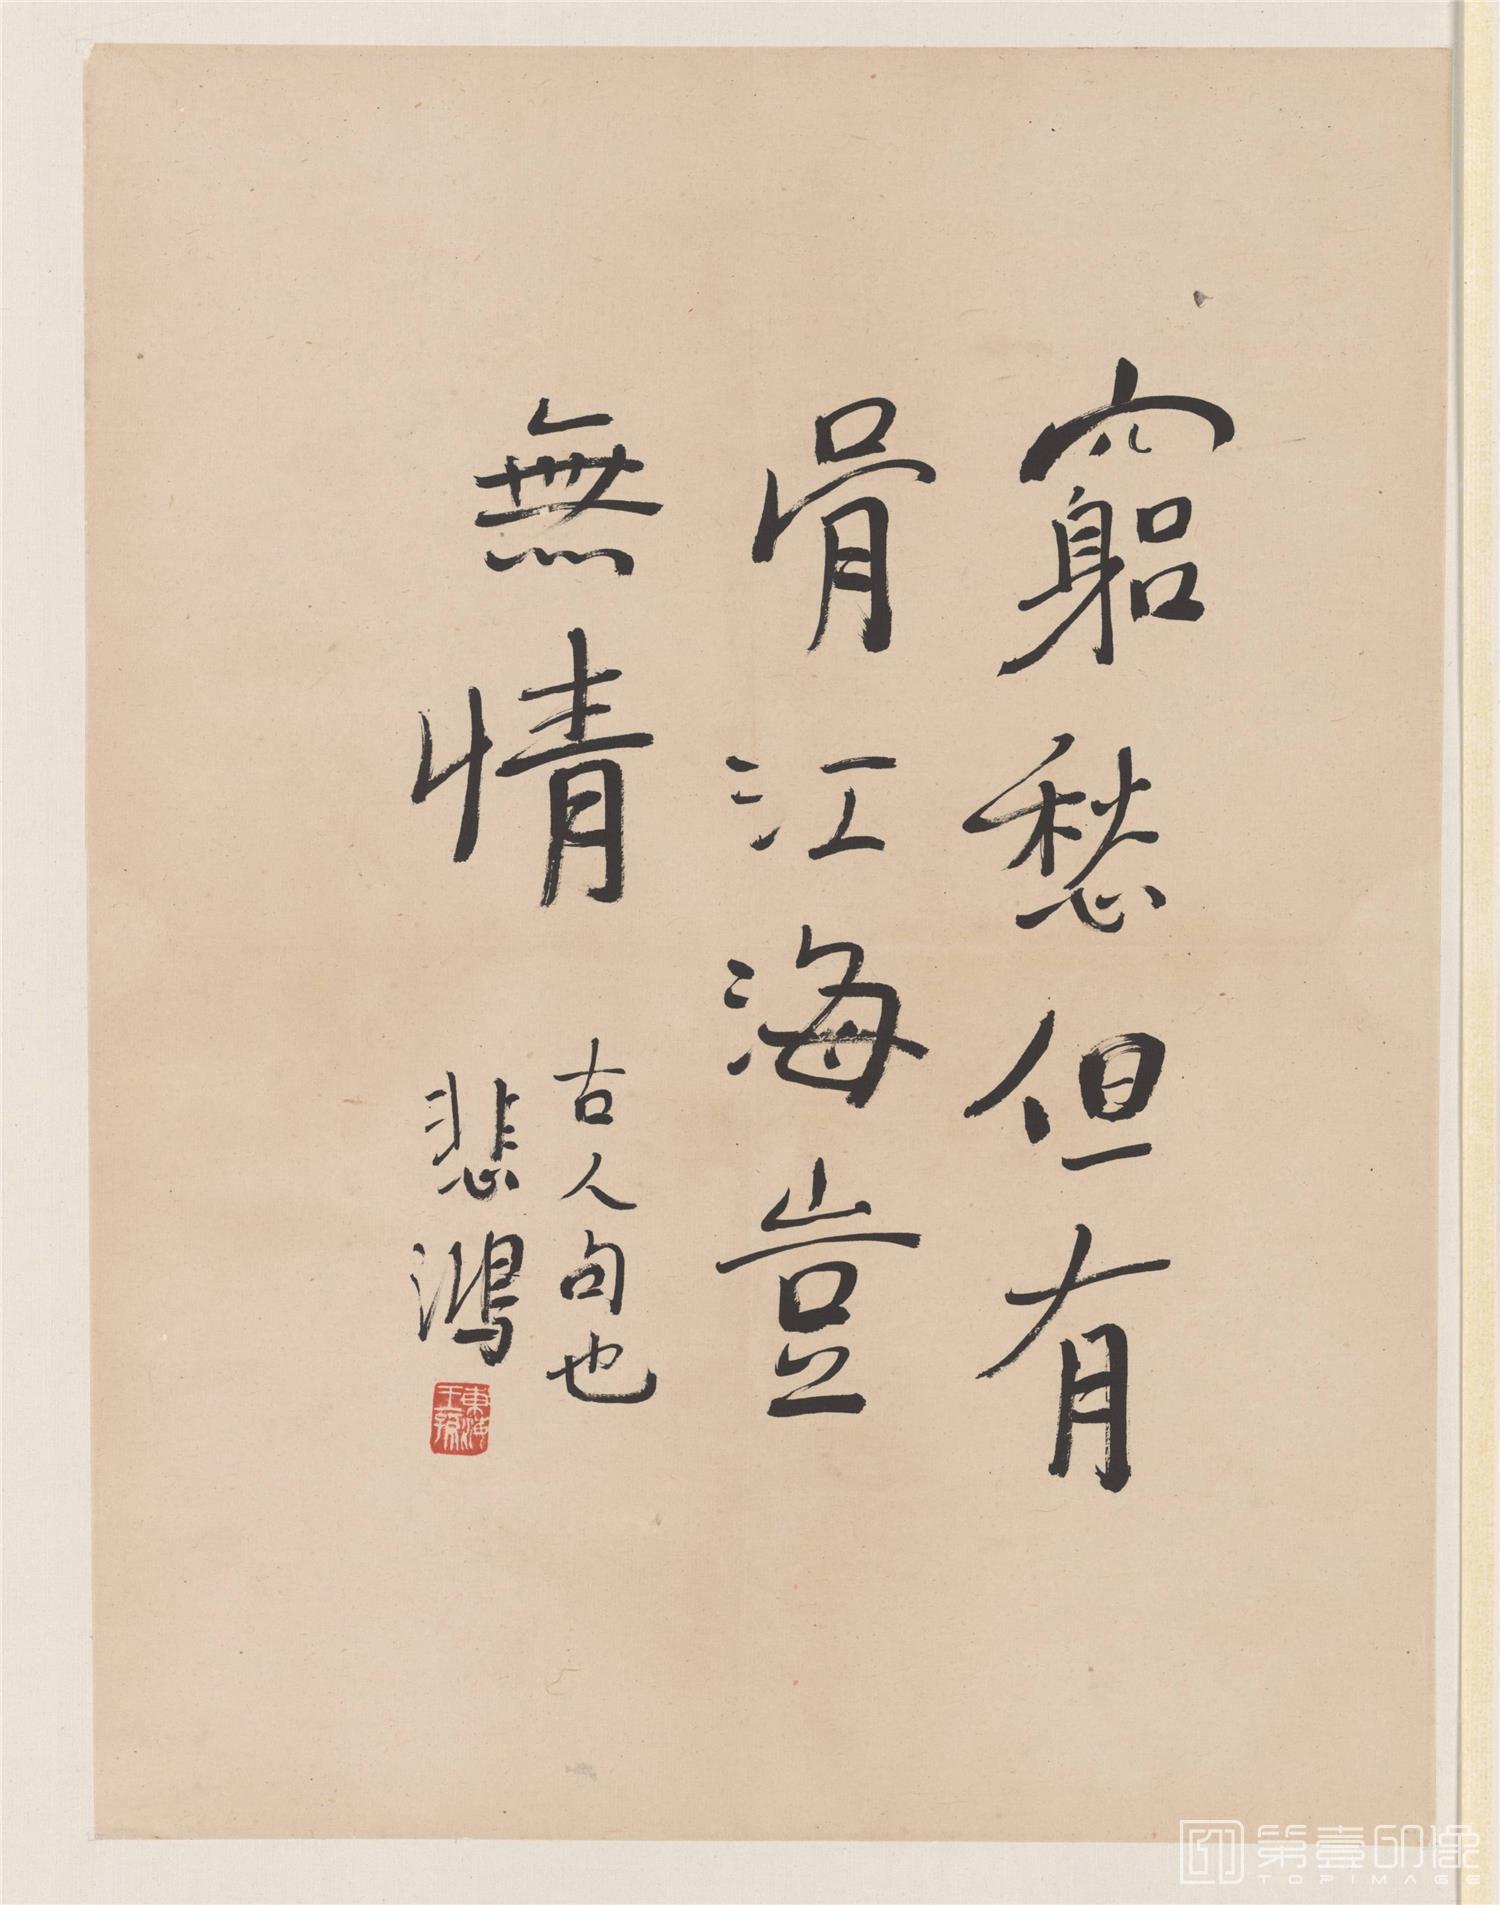 窮愁但有
骨江海豈
無情
古人句也
悲鴻
東海
王孫
第壹印像
TOPIMAGE